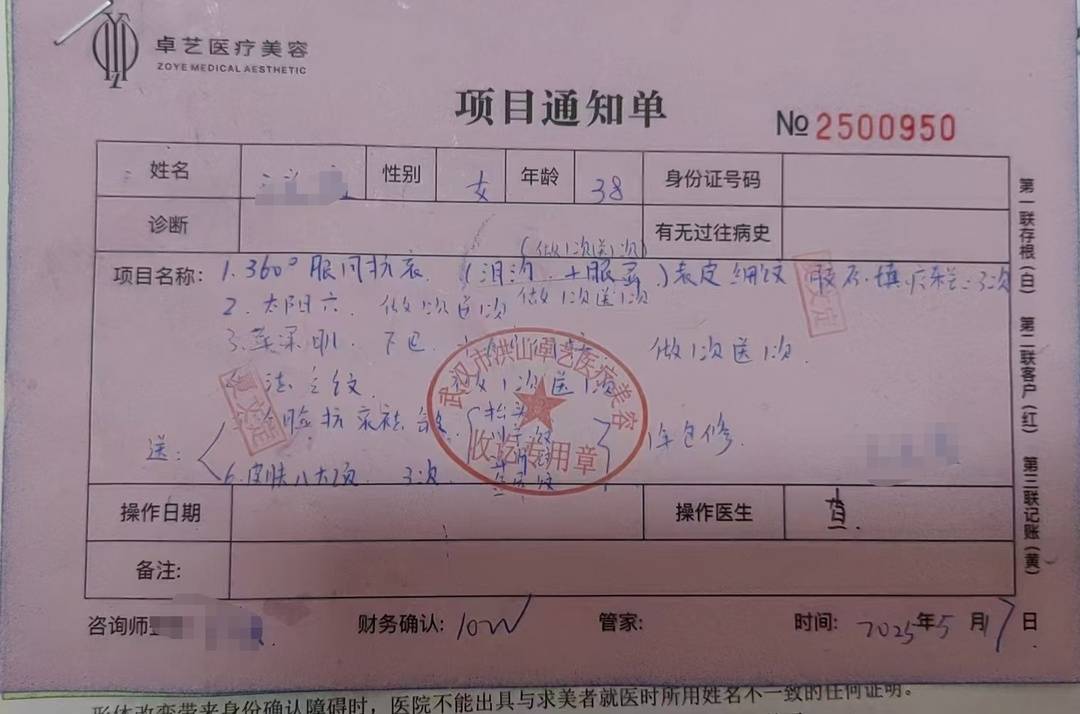 卓艺医疗美容
ZOYE MEDICAL AESTHETIC
项目通知单
№ 2500950
姓名 性别 女 年龄 38 身份证号码
诊断 有无过往病史
(做1次送1次)
项目名称: 1.360°眼周抗衰 (泪沟 + 眼 )表皮细纹 胶原填 3次
做1次送1次
2. 太阳穴 做1次送1次
3. 下巴 做1次送1次
法令纹 做1次送1次
送: 脸抗衰 抬头 年包修
6.皮肤八大项 3次
武汉市洪山卓艺医疗美容
收讫专用章
操作日期 操作医生
备注:
咨询师 财务确认: 10W 管家: 时间: 2025年5月17日
第一联存根(白) 第二联客户(红) 第三联记账(黄)
形体改变带来身份确认障碍时，医院不能出具与求美者就医时所用姓名不一致的任何证明。